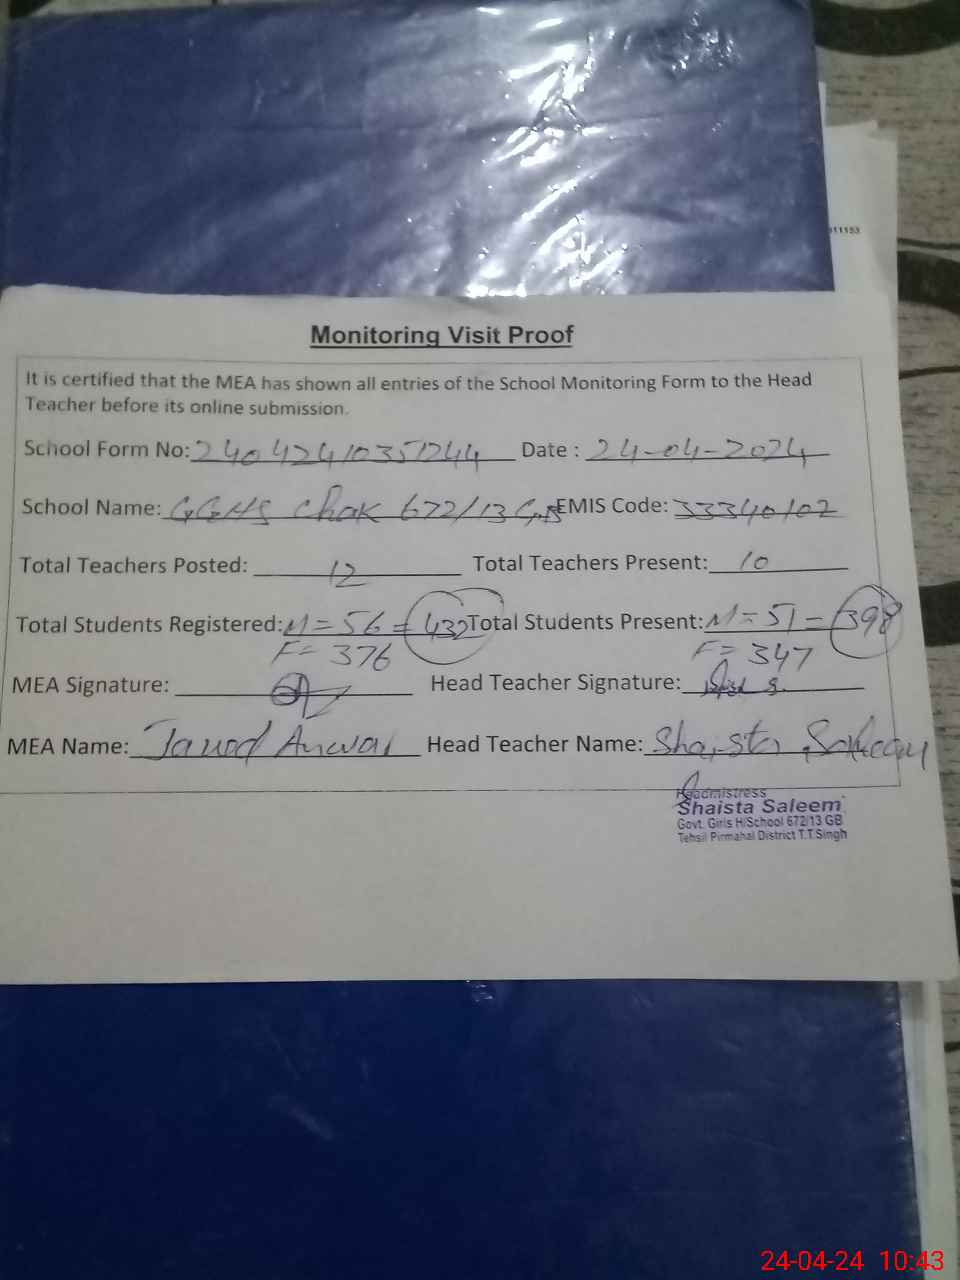 11153
Monitoring Visit Proof
It is certified that the MEA has shown all entries of the School Monitoring Form to the Head
Teacher before its online submission.
School Form No: 24042410351244 Date : 24-04-2024
School Name: GGHS Chak 672/13 GB EMIS Code: 33340102
Total Teachers Posted: 12 Total Teachers Present: 10
Total Students Registered: M = 56 = 432 Total Students Present: M = 51 = 398
F = 376 F = 347
MEA Signature: Head Teacher Signature:
MEA Name: Jawad Anwar Head Teacher Name: Shaista Saleem
Headmistress
Shaista Saleem
Govt. Girls H/School 672/13 GB
Tehsil Pirmahal District T.T.Singh
24-04-24 10:43